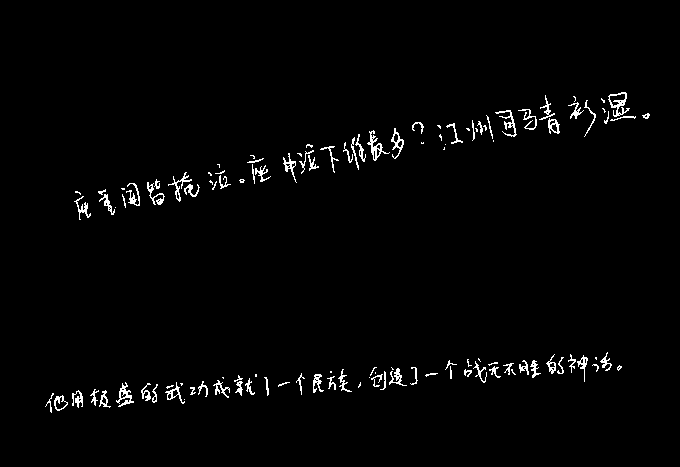 座重闻皆掩泣。座中泣下谁最多？江州司马青衫湿。
他用极盛的武功成就了一个民族，创造了一个战无不胜的神话。